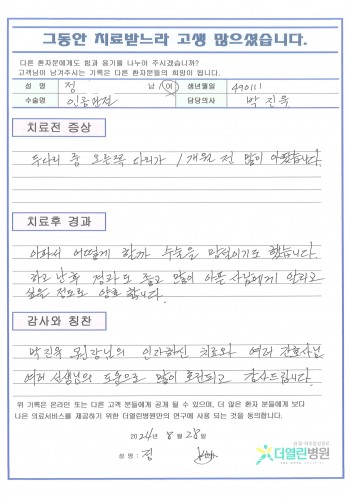 그동안 치료받느라 고생 많으셨습니다.
다른 환자분에게도 힘과 용기를 나누어 주시겠습니까?
고객님이 남겨주시는 기록은 다른 환자분들의 희망이 됩니다.
성 명 정 남 / 여 생년월일 490111
수술명 인공관절 담당의사 박진욱
치료전 증상
두다리 중 오른쪽 다리가 1개월 전 많이 아팠습니다.
치료후 경과
아파서 어떻게 할까 수술을 망설이기도 했습니다.
하고 난 후 경과도 좋고 많이 아픈 사람에게 알리고
싶은 정도로 양호 합니다.
감사와 칭찬
박진욱 원장님의 인자하신 치료와 여러 간호사님
여러 선생님의 도움으로 많이 호전되고 감사드립니다.
위 기록은 온라인 또는 다른 고객 분들에게 공개 될 수 있으며, 더 많은 환자 분들에게 보다
나은 의료서비스를 제공하기 위한 더열린병원만의 연구에 사용 되는 것을 동의합니다.
2024년 8월 28일
성 명 : 정
더열린병원